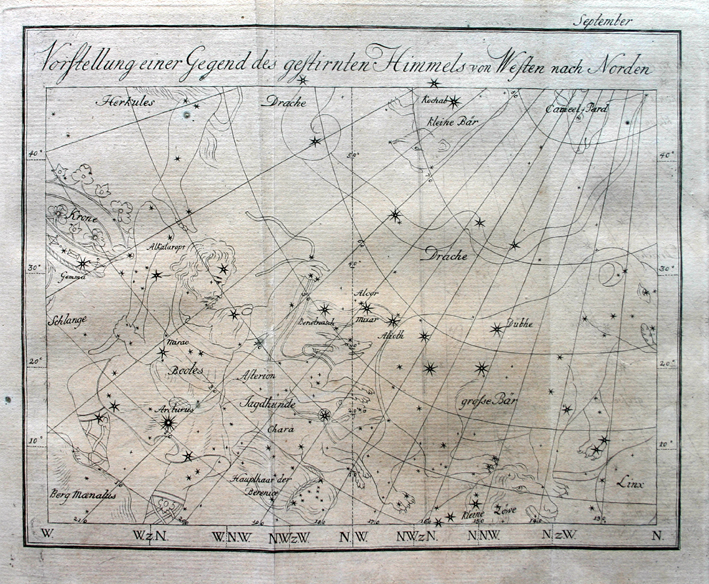 September
Vorstellung einer Gegend des gestirnten Himmels von Westen nach Norden
Herkules
Drache
Kochab
kleine Bär
Cameel-Pard
40°
40°
Krone
Alkaturopt
Gemma
Drache
30°
30°
Schlange
Alcor
Benetnasch
Misar
Alioth
Dubhe
Mirac
20°
20°
Bootes
Asterion
Jagdhunde
große Bär
Arcturus
Chara
10°
10°
Haupthaar der
Berenice
Linx
Berg Mænalus
kleine Löwe
W. WzN. WNW. NWzW. NW. NWzN. NNW. NzW. N.